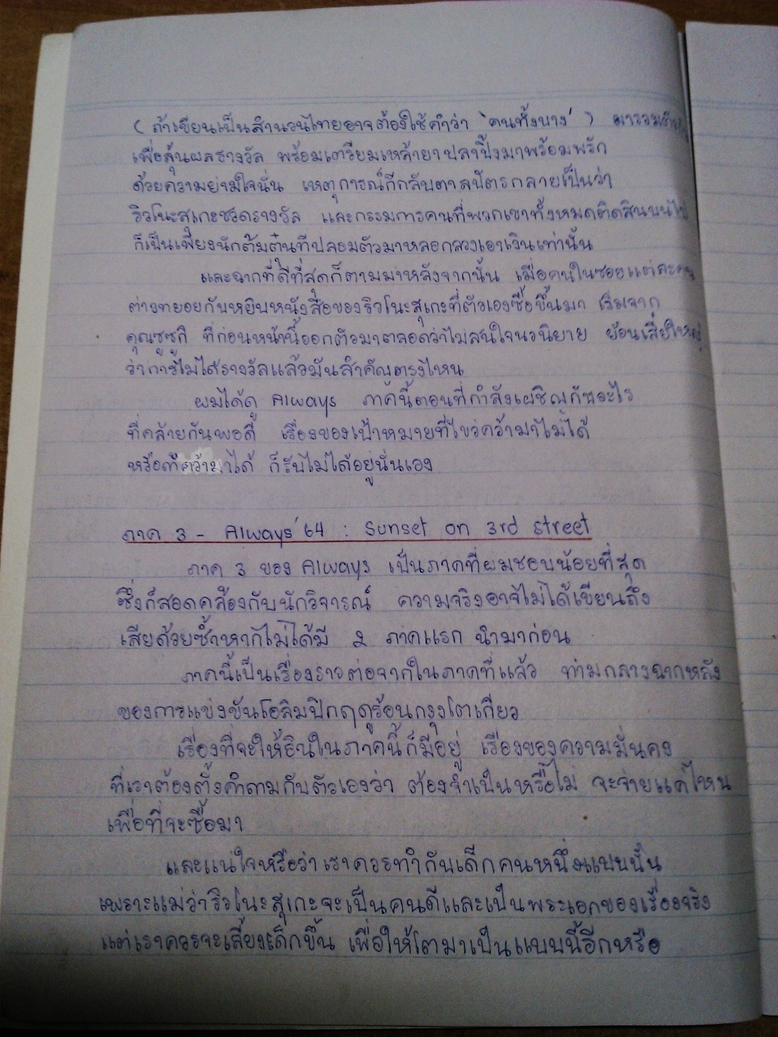 (ถ้าเขียนเป็นสำนวนไทยอาจต้องใช้คำว่า 'คนทั้งบาง') มารวมตัว
เพื่อลุ้นผลรางวัล พร้อมเตรียมเหล้ายาปลาปิ้งมาพร้อมพรัก
ด้วยความย่ามใจนั้น เหตุการณ์ก็กลับตาลปัตรกลายเป็นว่า
ริวโนะสุเกะชวดรางวัล และกรรมการคนที่พวกเขาทั้งหมดติดสินบนไป
ก็เป็นเพียงนักต้มตุ๋นที่ปลอมตัวมาหลอกลวงเอาเงินเท่านั้น
และฉากที่ดีที่สุดก็ตามมาหลังจากนั้น เมื่อคนในซอยแต่ละคน
ต่างทยอยกันหยิบหนังสือของริวโนะสุเกะที่ตัวเองซื้อขึ้นมา เริ่มจาก
คุณซูซูกิ ที่ก่อนหน้านี้ออกตัวมาตลอดว่าไม่สนใจนวนิยาย ย้อนเสียใหญ่
ว่าการไม่ได้รางวัลแล้วมันสำคัญตรงไหน
ผมได้ดู Always ภาคนี้ตอนที่กำลังเผชิญกับอะไร
ที่คล้ายกันพอดี เรื่องของเป้าหมายที่ไขว่คว้ามาไม่ได้
หรือที่คว้ามาได้ ก็รับไม่ได้อยู่นั่นเอง
ภาค 3 - Always'64 : Sunset on 3rd Street
ภาค 3 ของ Always เป็นภาคที่ผมชอบน้อยที่สุด
ซึ่งก็สอดคล้องกับนักวิจารณ์ ความจริงอาจไม่ได้เขียนถึง
เสียด้วยซ้ำหากไม่ได้มี 2 ภาคแรก นำมาก่อน
ภาคนี้เป็นเรื่องราวต่อจากในภาคที่แล้ว ท่ามกลางฉากหลัง
ของการแข่งขันโอลิมปิกฤดูร้อนกรุงโตเกียว
เรื่องที่จะให้อินในภาคนี้ก็มีอยู่ เรื่องของความมั่นคง
ที่เราต้องตั้งคำถามกับตัวเองว่า ต้องจำเป็นหรือไม่ จะจ่ายแค่ไหน
เพื่อที่จะซื้อมา
และแน่ใจหรือว่าเราควรทำกับเด็กคนหนึ่งแบบนั้น
เพราะแม้ว่าริวโนะสุเกะจะเป็นคนดีและเป็นพระเอกของเรื่องจริง
แต่เราควรจะเลี้ยงเด็กขึ้น เพื่อให้โตมาเป็นแบบนี้อีกหรือ